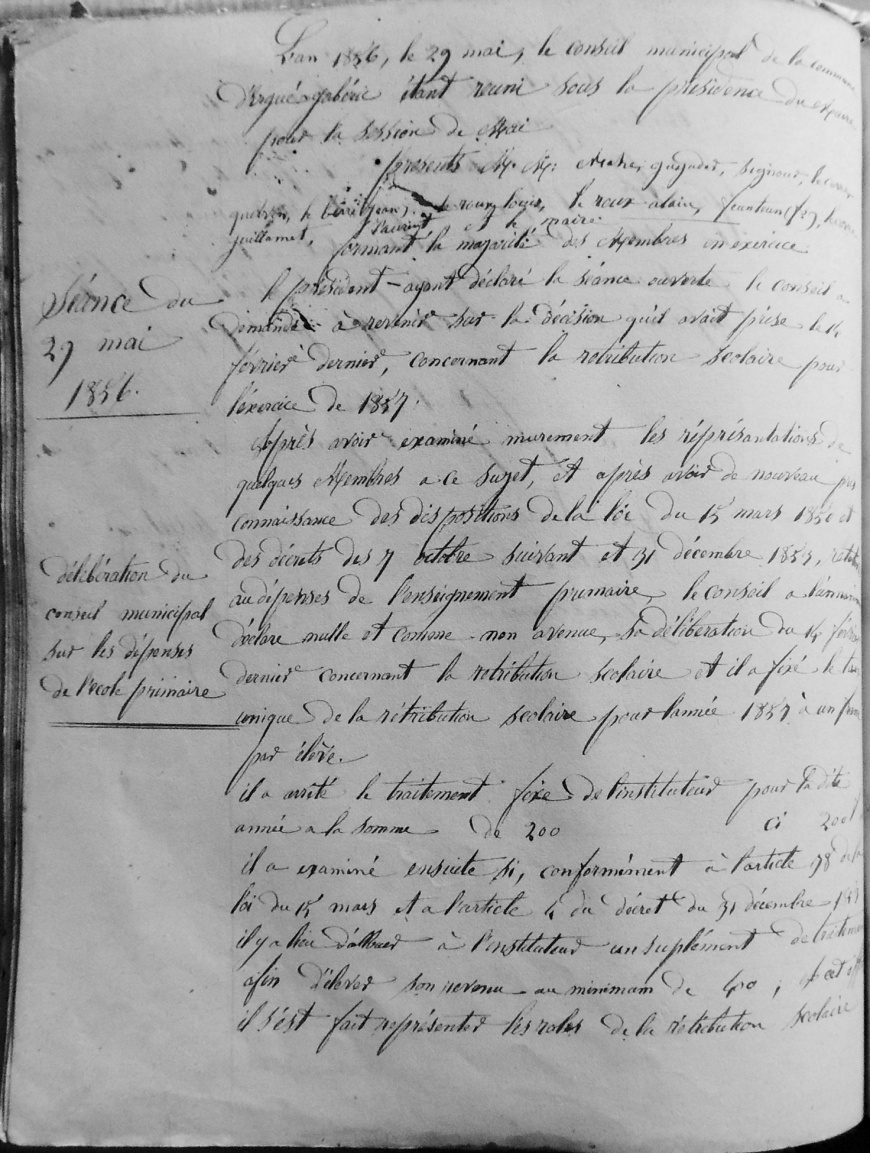 L'an 1856, le 29 mai, le conseil municipal de la commune
d'Ergué-gabéric étant reuni sous la présidence du Maire,
pour la session de Mai
présents M. M: Mahé, gagadec, Seznec,
le Berre (jean), le roux louis, le roux alain, feunteun (fs),
guillamet, et le maire.
formant la majorité des Membres en exercice
Séance du
29 mai
1856.
le président ayant déclaré la séance ouverte le conseil a
demandé à revenir sur la décision qu'il avait prise le 14
février dernier, concernant la rétribution scolaire pour
l'éxercice de 1857.
Après avoir examiné murement les réprésantations de
quelques Membres a ce sujet, et après avoir de nouveau pris
connaissance des dispositions de la loi du 15 mars 1850 et
des décrets des 7 octobre suivant et 31 décembre 1853,
délibération du
conseil municipal
sur les dépenses
de l'ecole primaire
au dépenses de l'enseignement primaire, le conseil a
déclare nulle et comme non avenue, sa déliberation du 14 février
dernier concernant la rétribution scolaire et il a fixé le taux
unique de la rétribution scolaire pour l'année 1857 à un franc
par élève.
il a arrêté le traitement fixe de l'instituteur pour la dite
année a la somme de 200 ci 200
il a examiné ensuite si, conformément à l'article 38 de la
loi du 15 mars et a l'article 4 du décret du 31 décembre 1853
il y a lieu d'allouer à l'instituteur un suplément de traitement
afin d'élever son revenu au minimum de 400 ;
il s'est fait représenter les roles de la rétribution scolaire